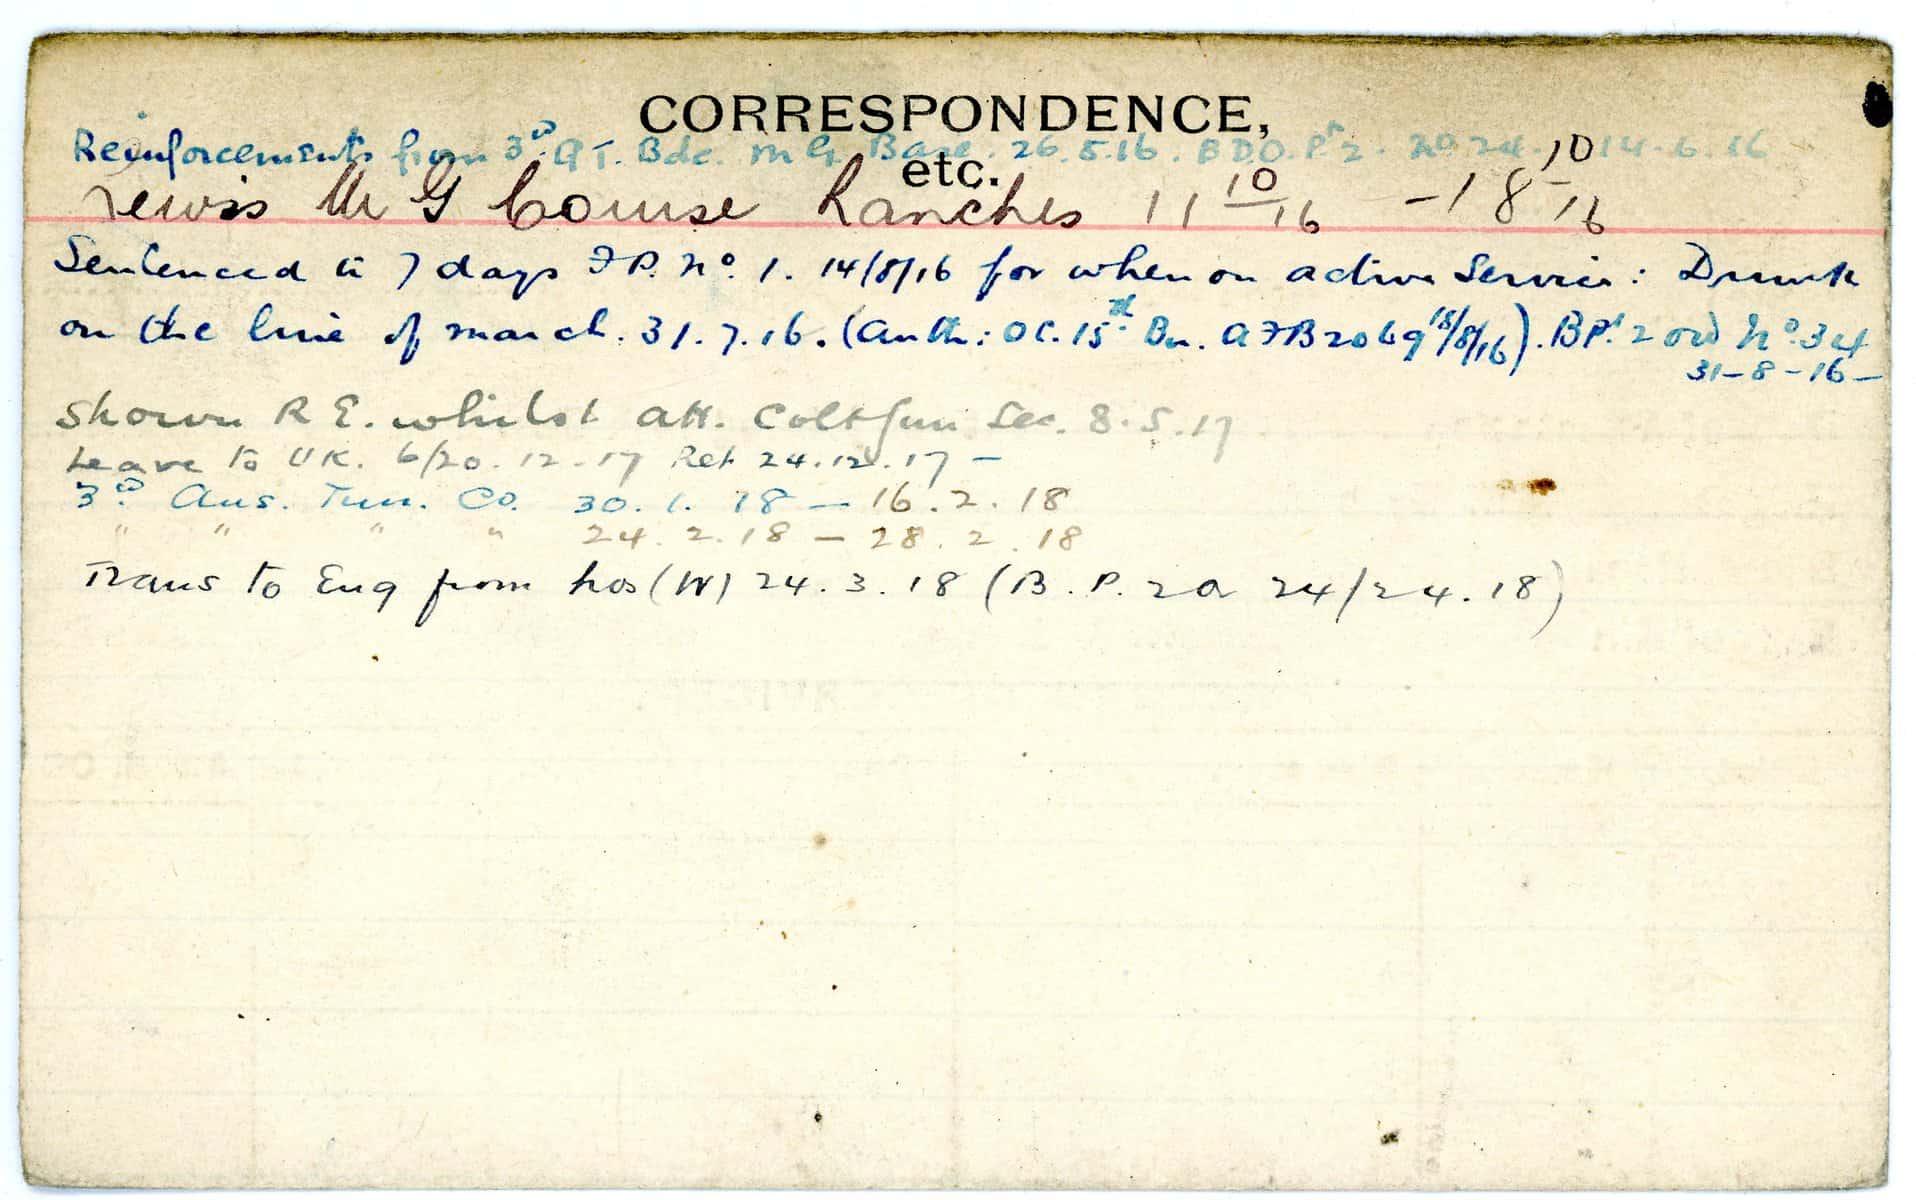 CORRESPONDENCE,
Reinforcements from 3rd Bde. M G. Base. 26.5.16. B D.O. Pt 2. No 24. 14.6.16
etc.
Lewis M G Course Ranches 11 10/16 - 18 10/16
Sentenced to 7 days F P. No. 1. 14/8/16 for when on active Service: Drunk
on the line of march. 31.7.16. (Auth: OC. 15th Bn. A F B 2069 18/8/16). B Pt. 2 ord No. 34
31-8-16-
Shown R E. whilst att. Colt Gun Sec. 8.5.17
Leave to UK. 6/20.12.17 Ret 24.12.17 -
3rd Aus. Tun. Co. 30.1.18 - 16.2.18
" " " " 24.2.18 - 28.2.18
Trans to Eng from hos (W) 24.3.18 (B.P. 2a 24/24.18)